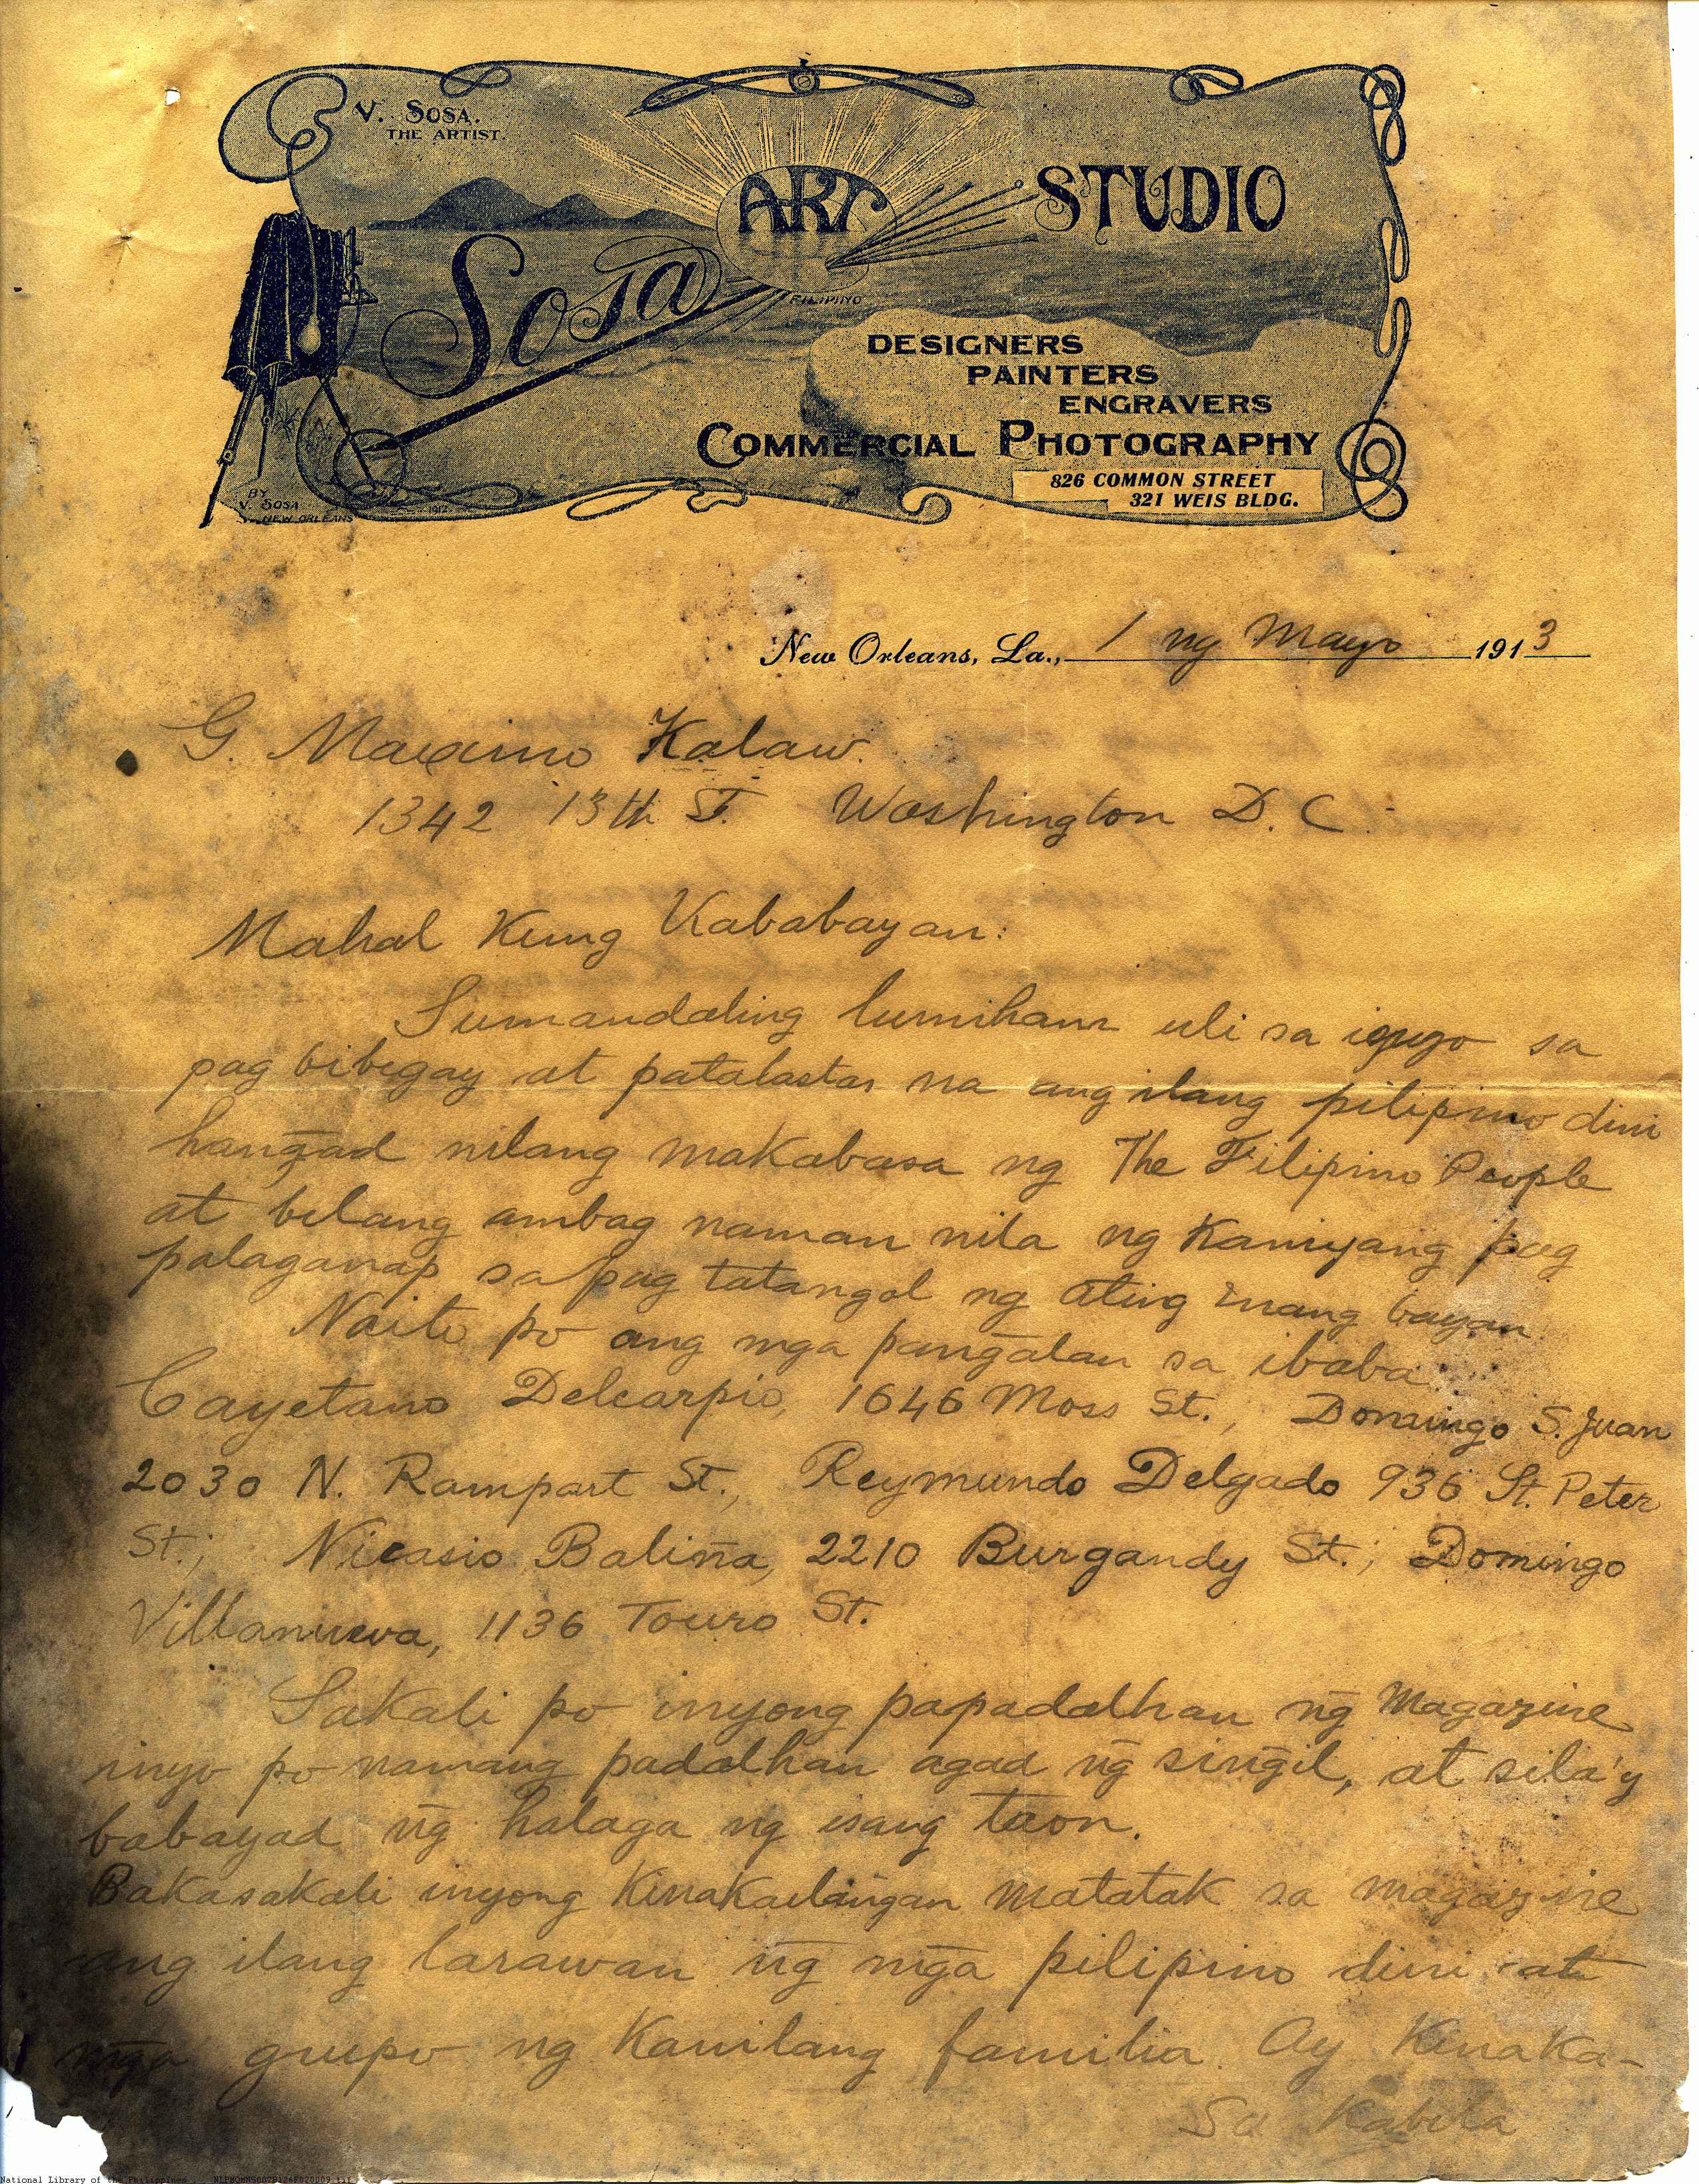 V. SOSA.
THE ARTIST.
Sosa ART STUDIO
FILIPINO
DESIGNERS
PAINTERS
ENGRAVERS
COMMERCIAL PHOTOGRAPHY
826 COMMON STREET
321 WEIS BLDG.
BY
V. SOSA
NEW ORLEANS
1912
New Orleans, La., 1 ng Mayo 1913
G. Maximo Kalaw.
1342 13th St. Washington D.C.
Mahal Kung Kababayan:
Sumandaling lumiham uli sa iyuyo sa
pag bibigay at patalastas na ang ilang pilipino dini
hangad nilang makabasa ng The Filipino People
at bilang ambag naman nila ng Kaniyang pag
palaganap sa pag tatangol ng ating inang bayan
Naito po ang mga pangalan sa ibaba:
Cayetano Delcarpio, 1646 Moss St., Domingo S. Juan
2030 N. Rampart St., Reymundo Delgado 936 St. Peter
St.; Nicasio Baliña, 2210 Burgandy St.; Domingo
Villanueva, 1136 Touro St.
Sakali po inyong papadalhan ng̃ Magazine
inyo po namang padalhan agad ng̃ sing̃il, at sila'y
babayad ng̃ halaga ng isang taon.
Bakasakali inyong Kinakailang̃an matatak sa magazine
ang ilang larawan ng̃ mg̃a pilipino dini at
mg̃a grupo ng Kanilang familia. Ay Kinaka-
Sa Kabila
National Library of the Philippines